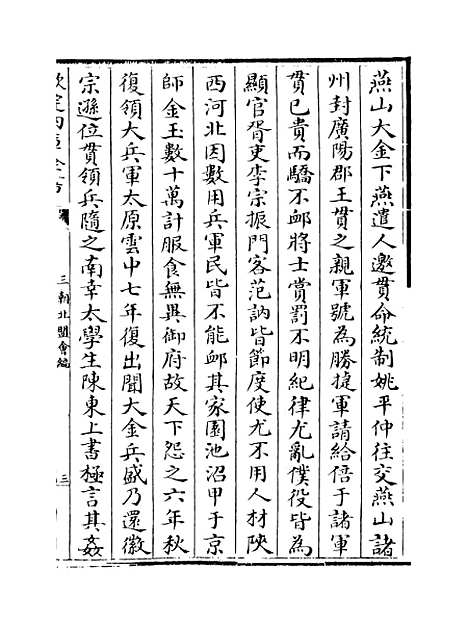 燕山大金下燕遣人邀貫命統制姚平仲往交燕山諸
州封廣陽郡王貫之親軍號為勝捷軍請給倍于諸軍
貫已貴而驕不䘏將士賞罰不明紀律尤亂僕役皆為
顯官胥吏李宗振門客范訥皆節度使尤不用人材陝
西河北因數用兵軍民皆不能䘏其家園池沼甲于京
師金玉數十萬計服食無異御府故天下怨之六年秋
復領大兵軍太原雲中七年復出聞大金兵盛乃還徽
宗遜位貫領兵隨之南幸太學生陳東上書極言其姦
欽定四庫全書
三朝北盟會編
三